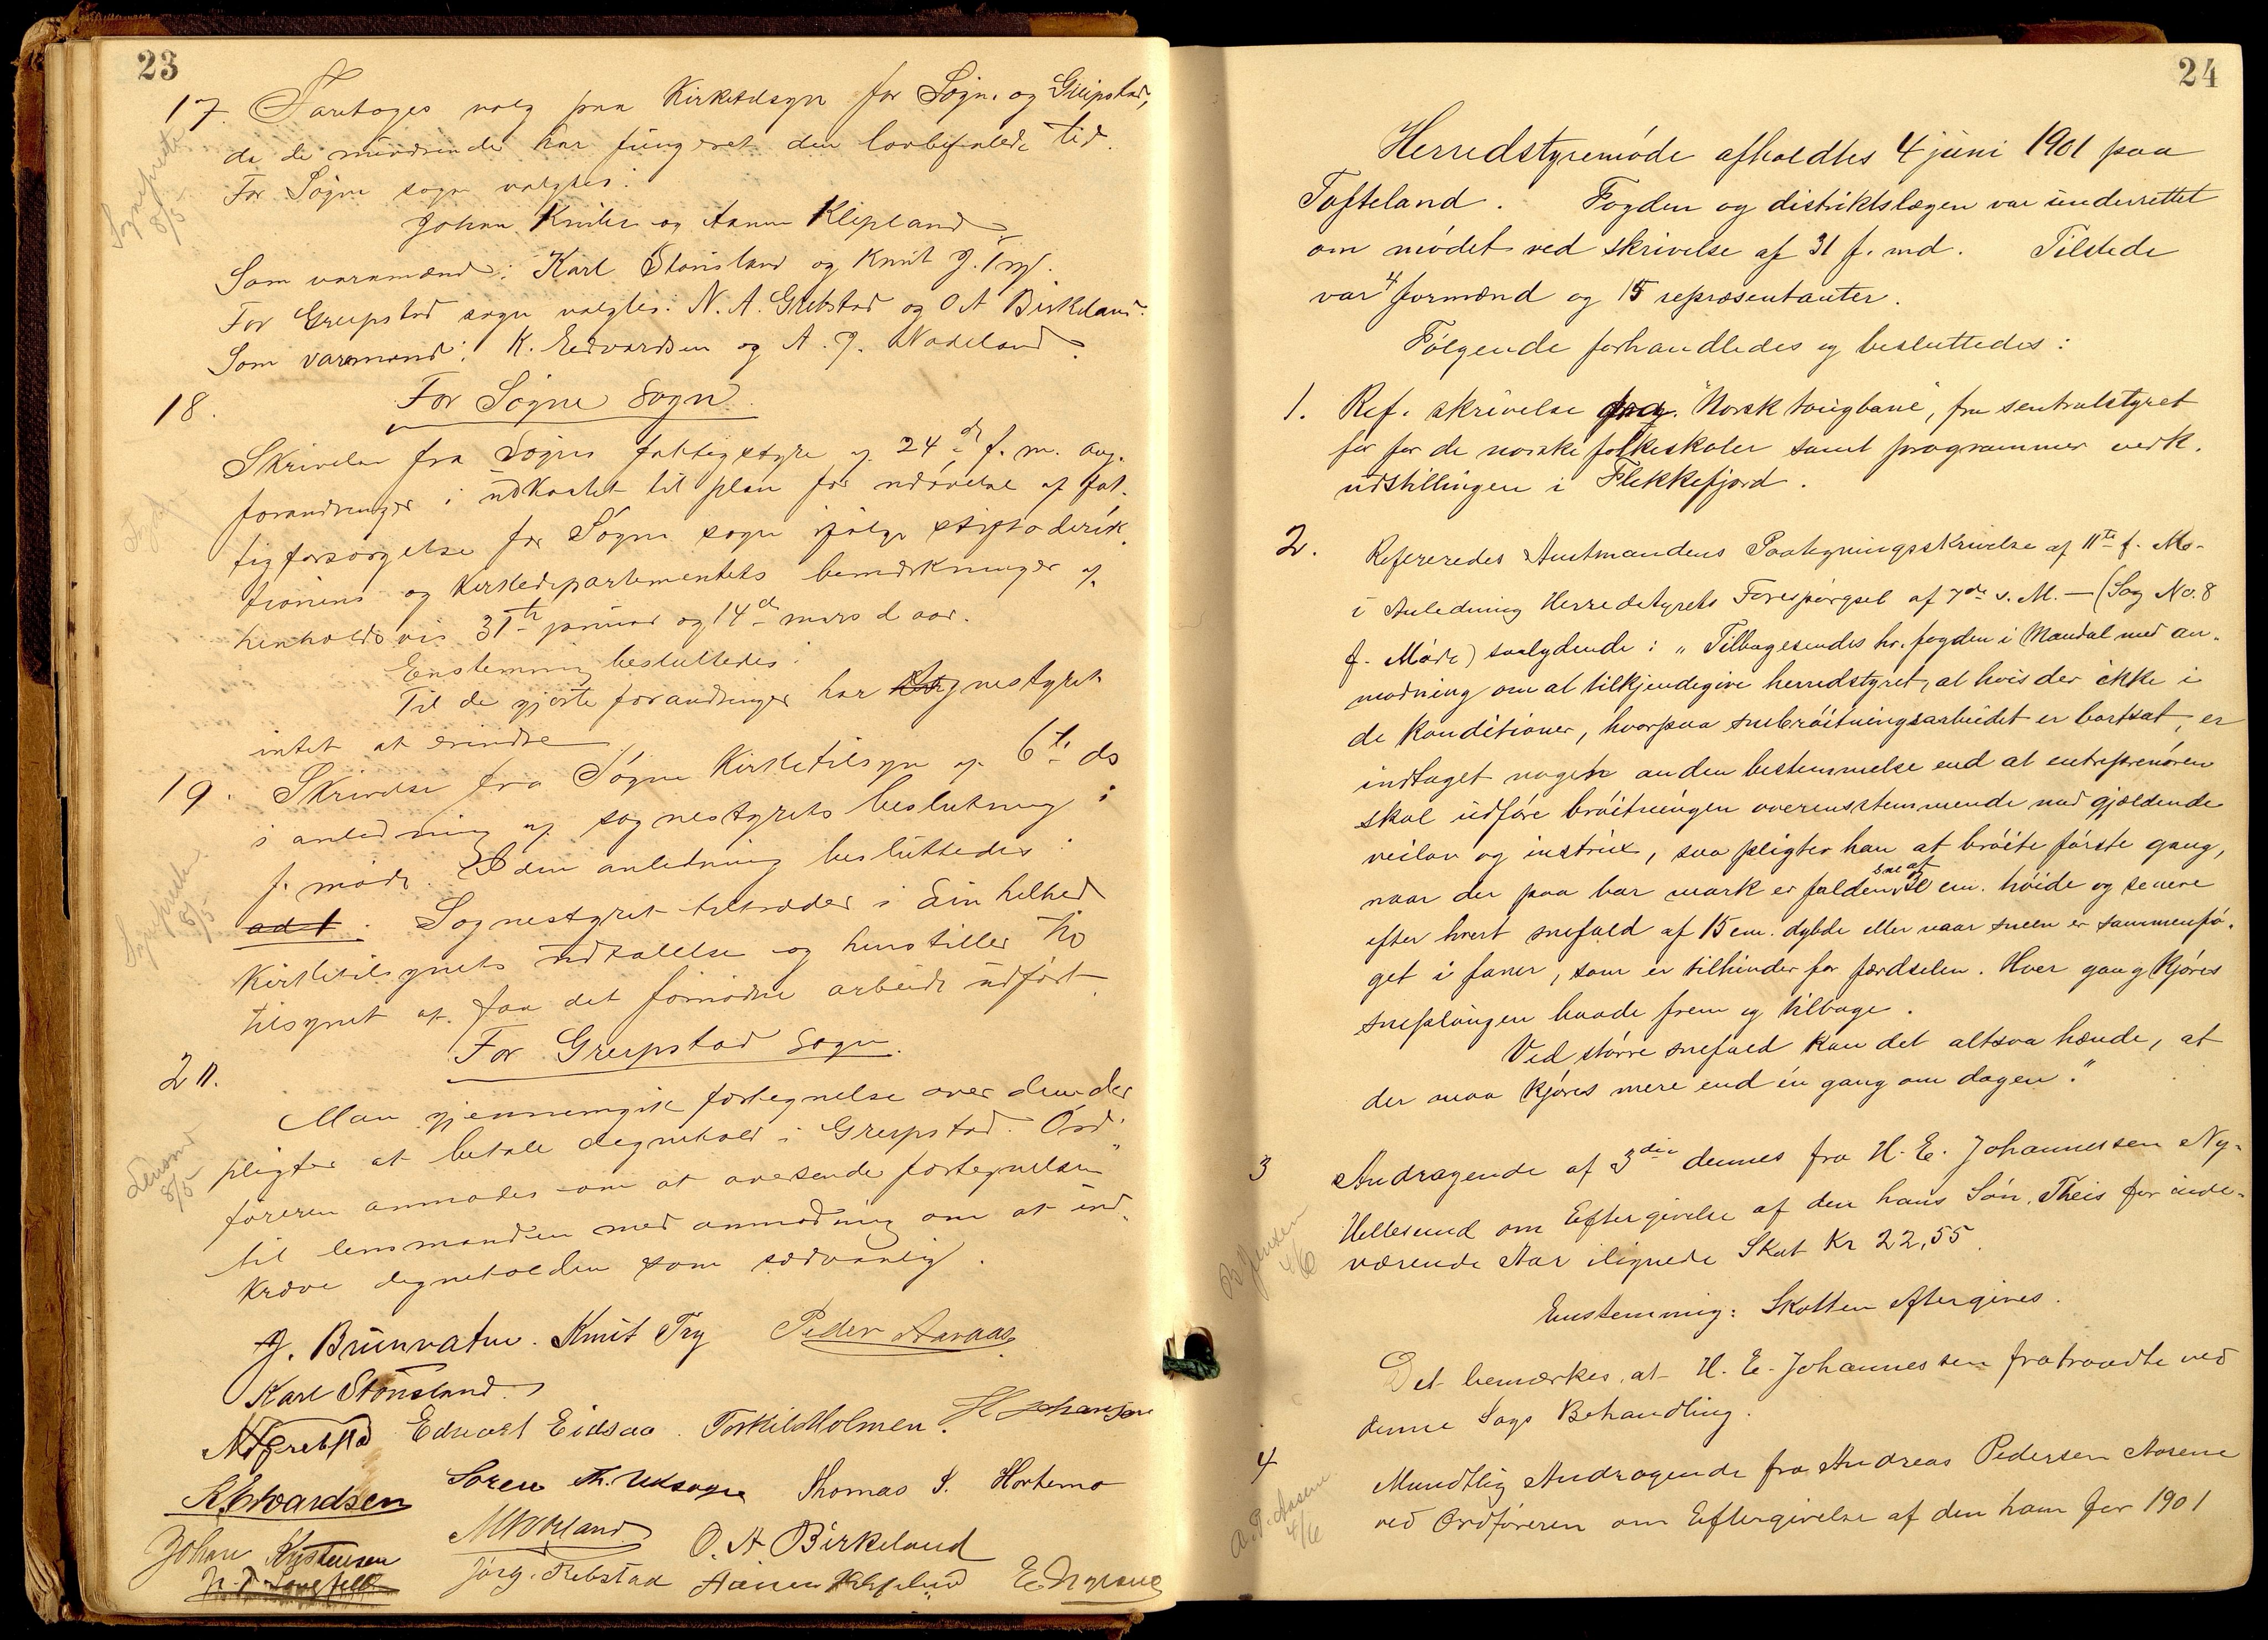 23
17. Foretoges valg paa Kirketilsyn for Søgne og Greipstad,
da de nuværende har fungeret den lovbefalede tid.
Sogneprester
8/5
For Søgne sogn valgtes:
Johan Knibe og Aanen Klepland
Som varamænd: Karl Stousland og Knut J. Try.
For Greipstad sogn valgtes: N. A. Grebstad og O A Birkeland.
Som varamænd: K. Edvardsen og A. J. Nodeland.
18. For Søgne sogn
Skrivelse fra Søgne fattigstyre af 24de f. m. ang.
forandringer i udkastet til plan for udøvelse af fat-
tigforsørgelse for Søgne sogn ifølge stiftsdirek-
tionens og Kirkedepartementets bemærkninger af
henholdsvis 31te januar og 14de mars d aar.
Enstemmig besluttedes:
Til de gjorte forandringer har sognestyret
intet at erindre
19. Skrivelse fra Søgne Kirketilsyn af 6te ds
i anledning af sognestyrets beslutning i
f. møde. I den anledning besluttedes:
8/5
ad 1. Sognestyret tiltræder i sin helhed
Kirketilsynets udtalelse og henstiller til
tilsynet at faa det fornødne arbeide udført.
For Greipstad sogn.
20.
Man gjennemgik fortegnelse over dem der
pligter at betale degnehold i Greipstad. Ord-
føreren anmodes om at oversende fortegnelsen
Lensm
8/5
til lensmanden med anmodning om at ind-
kræve degneholden som sædvanlig.
J. Brunvatne. Knut Try Peder Aavaas
Karl Stousland.
N A Grebstad Edvart Eidsaa. Torkild Holmen. H Johansen
K. Edvardsen Søren Th. Udsøgne Thomas S. Hortemo
Johan Kristensen O. A Birkeland
Jørg. Rebstad Aanen Klepland
24
Herredstyremøde afholdtes 4 juni 1901 paa
Tofteland. Fogden og distriktslægen var underrettet
om mødet ved skrivelse af 31 f. md. Tilstede
var 4 formænd og 15 repræsentanter.
Følgende forhandledes og besluttedes:
1. Ref. skrivelse fra "Norsk taugbane", fra sentralstyret
for for de norske folkeskoler samt programmer vedk.
udstillingen i Flekkefjord.
2. Refereredes Amtmandens Paategningsskrivelse af 11te f. Md-
i Anledning Herredstyrets Forespørgsel af 7de s. M. — (Sag No. 8
f. Møde) saalydende: "Tilbagesendes hr. fogden i Mandal med an-
modning om at tilkjendegive herredstyret, at hvis der ikke i
de konditioner, hvorpaa snebrøitningsarbeidet er bortsat, er
indtaget nogen anden bestemmelse end at entreprenøren
skal udføre brøitningen overensstemmende med gjældende
veilov og instrux, saa pligter han at brøite første gang,
naar der paa bar mark er falden sne af 20 cm. høide og senere
efter hvert snefald af 15 cm. dybde eller naar sneen er sammenfø-
get i faner, som er tilhinder for færdselen. Hver gang kjøres
sneplougen baade frem og tilbage.
Ved større snefald kan det altsaa hænde, at
der maa kjøres mere end én gang om dagen."
3 Andragende af 3die dennes fra H. E. Johannessen Ny-
Hellesund om Eftergivelse af den hans Søn Theis for inde-
B Jensen
4/6
værende Aar ilignede Skat Kr 22,55.
Enstemmig: Skatten eftergives.
Det bemærkes, at H. E. Johannessen fratraadte ved
denne Sags Behandling.
4 Mundtlig Andragende fra Andreas Pedersen Aasene
A. P. Aasene
4/6
ved Ordføreren om Eftergivelse af den ham for 1901